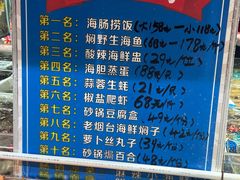 第一名：海肠捞饭（大158元一小118元）
第二名：焖野生海鱼（68元一178元/份）
第三名：酸辣海鲜盅（29元/位）
第四名：海胆蒸蛋（58元/只）
第五名：蒜蓉生蚝（21元/只）
第六名：椒盐爬虾 68元/份
第七名：砂锅豆腐盒（49元/份）
第八名：老烟台海鲜焖子（42元/份）
第九名：萝卜丝丸子（39元/份）
第十名：砂锅焗百合（48元/份）